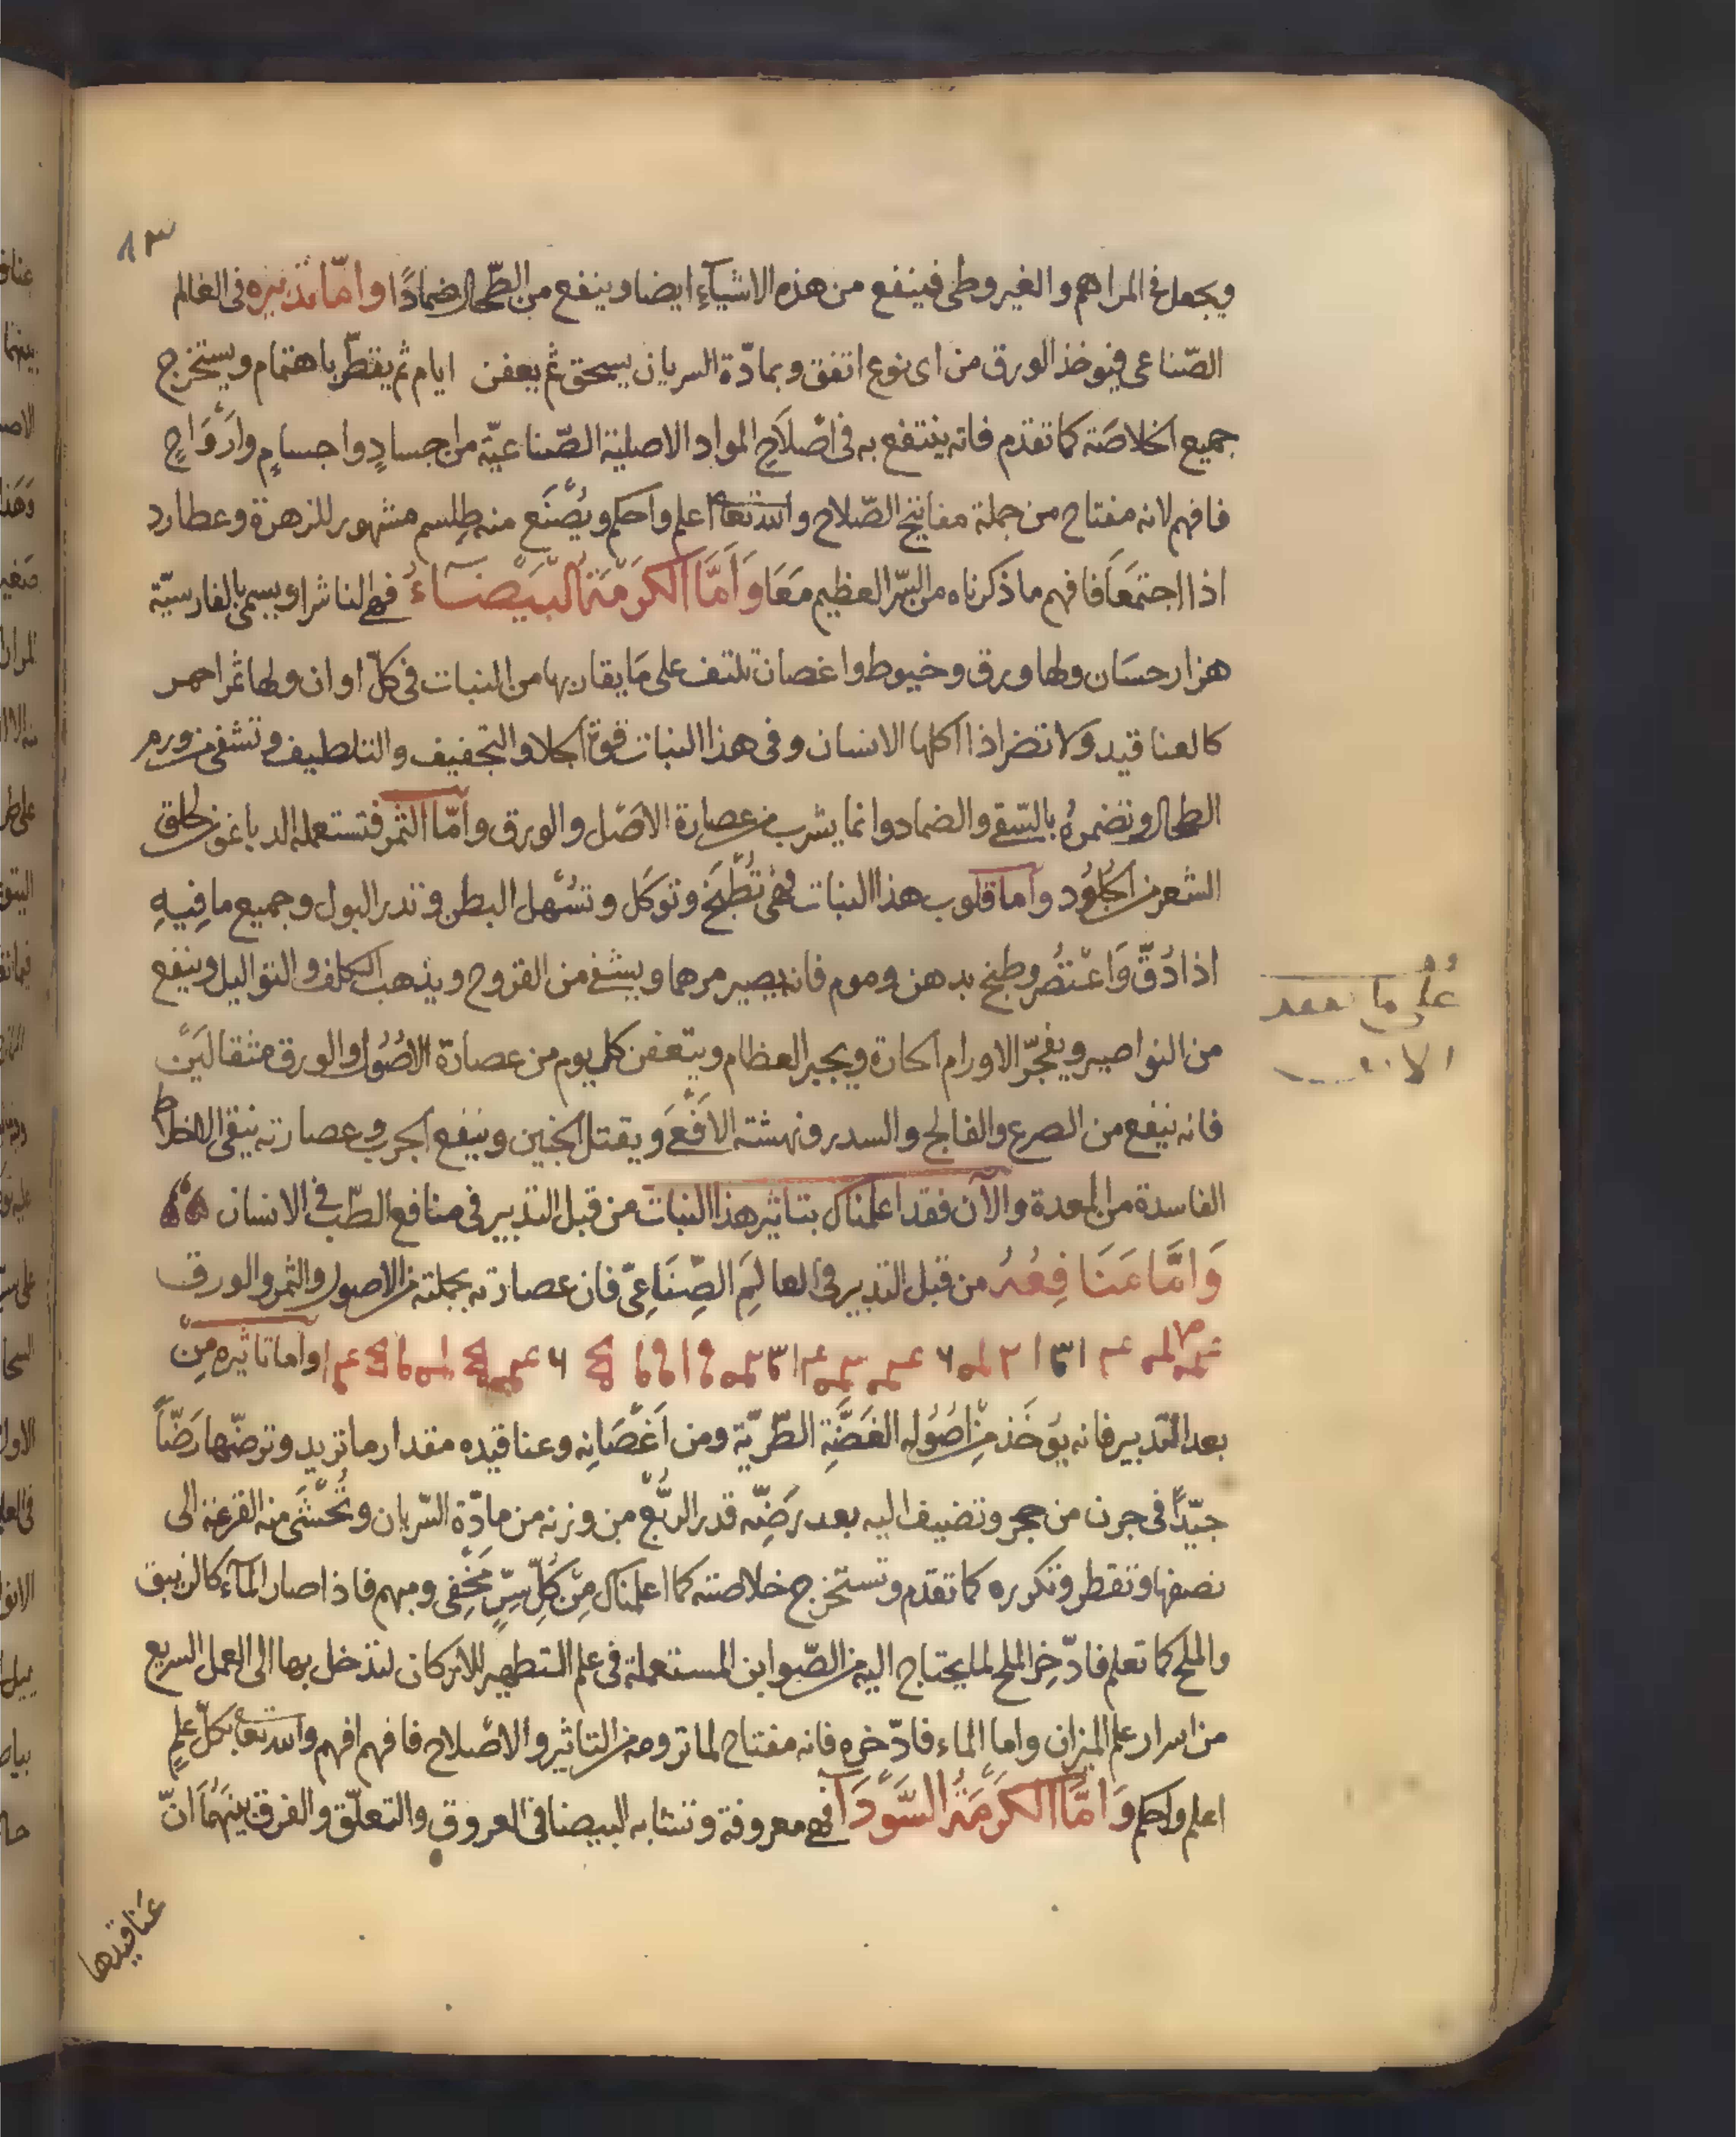 ٨٣
ويجعل فى المراهم والغيروطى فينفع من هذه الاشيآء ايضا وينفع من الطّحال ضمادًا وامّا تدبيره فى العالم
الصّناعى فيوخذ الورق من اى نوع اتفق وبمادّة السريان يسحق ثم يعفن ايام ثم يقطّر باهتمام ويستخرج
جميع الخلاصَة كما تقدم فانه ينتفع به فى اصْلاَحِ المواد الاصلية الصّناعيّة من اجسادٍ واجسامٍ وارْوَاحٍ
فافهم لانه مفتاح من جملة مفاتيح الصّلاح والله تعا اعلم واحكم ويُصْنَع منه طِلسم مشهور للزهرة وعطارد
اذا اجتمَعَا فافهم ما ذكرناه من السّر العظيم مَعَا وَاَمَّا الكَرْمَةُ الْبَيْضَاءُ فهى الناشرا ويسمى بالفارسيّة
هزارحسَان ولها ورق وخيوط واغصان تلتف على مَا يقاربها من النبات فى كلّ اوان ولها ثمر احمر
كالعناقيد ولا تضر اذا اكلها الانسان وفى هذا النبات قوة الجلا والتجفيف والتلطيف وتشفى من ورم
الطحال وتضمرهُ بالسّقى والضماد وانما يشرب من عصارة الاصْل والورق وامّا الثمر فتستعمله الدباغون لحلق
الشعر من الجلُوُد واما قلوب هذا النبات فهى تُطْبَخ وتوكَل وتسْهل البطن وتدر البول وجميع ما فِيهِ
اذا دُقّ وَاعْتُصُر وطبخ بدهن وموم فانه يصير مرهما ويشفى من القروح ويذهب الكلف والثواليل وينفع
من النواصير ويفجّر الاورام الحارة ويجبر العظام ويتعفن كل يوم من عصارة الاصُوُل والورق مثقالَيْن
فانه ينفع من الصرع والفالج والسدر ونهشته الافْعَى ويقتل الجنين وينفع الجرب وعصارته ينقى الاخلاط
الفاسدة من المعدة والآن فقد اعلمناك بتاثير هذا النبات من قبل التدبير فى منافع الطّب فى الانسان
وَامَّا مَنَافِعُهُ من قبل التدبير فى العالِمَ الصِّنَاعِىّ فان عصارته بجملته من الاصول والثمر والورق
واما تاثيره مِنْ
بعد التدبير فانه يوُخَذ مِنْ اصُوُله الغَضَّةِ الطّريّة ومن اَغْصَانِه وعناقيده مقدار ما تريد وترضّها رَضّاً
جيّداً فى جرن من حجر وتضيف اليه بعد رَضِّه قدر الرُّبْع من وزنه من مادّة السّريان وتُحْشَى منه القرعة الى
نصفها وتقطر وتكرره كما تقدم وتستخرج خلاصته كما اعلمناك مِنْ كُلّ سِرٍّ مَخْفِى ومبهم فاذا صار المآء كالزيبق
والملح كما تعلم فادّخِر الملح لما يحتاج اليه من الصّوابن المستعملة فى علم التطهير للاركان لتدخل بها الى العمل السريع
من اسرار علم الميزان واما الماء فادّخره فانه مفتاح لما ترومه من التاثير والاصْلاح فافهم افهم والله تعا بكلّ علمٍ
اعلم واحكم وَامَّا الكَرْمَةُ السَّوْدَا فهى معروفة وتشابه البيضا فى العروق والتعلّق والفرق بينهُمَا انّ
عناقيدها